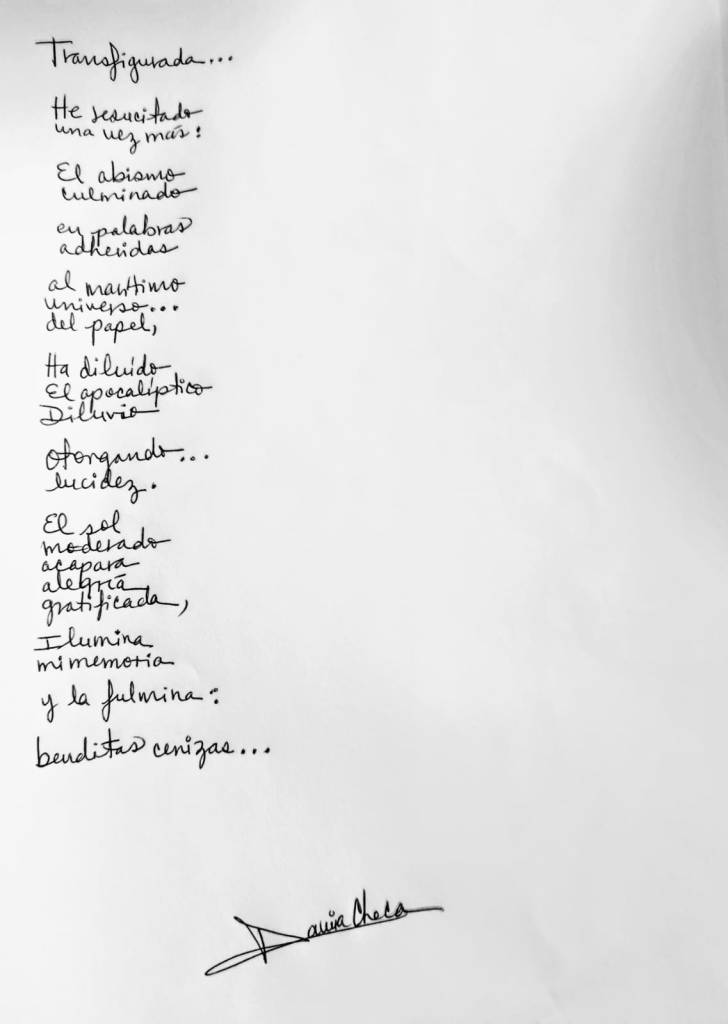 Transfigurada...
He resucitado
una vez más:
El abismo
culminado
en palabras
adheridas
al marítimo
universo...
del papel,
Ha diluído
El apocalíptico
Diluvio
otorgando...
lucidez.
El sol
moderado
acapara
alegría
gratificada,
Ilumina
mi memoria
y la fulmina:
benditas cenizas...
Checo